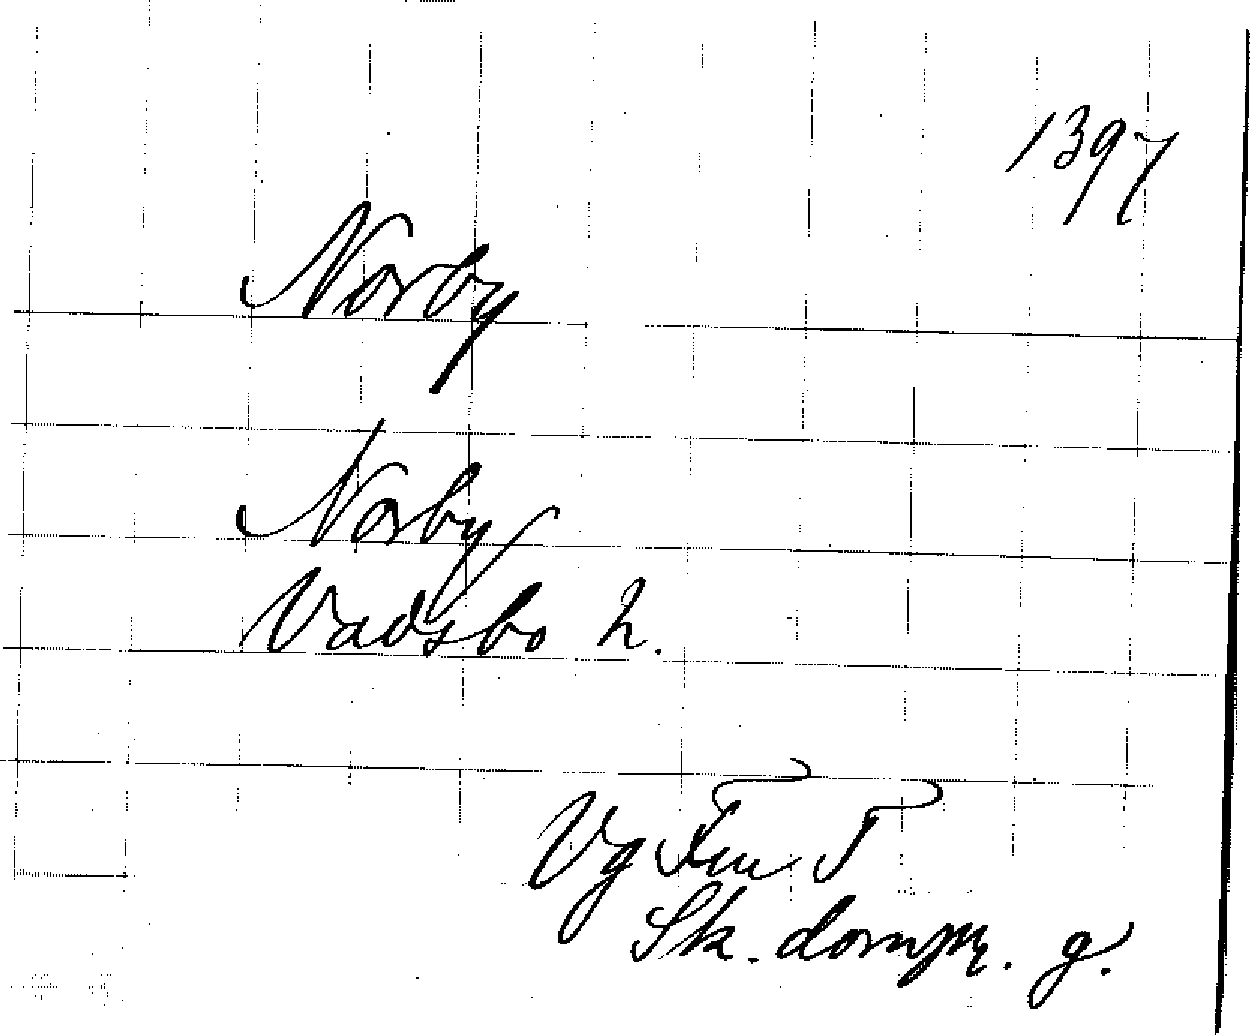 1397
Norby
Norby
Vadsbo h.
Vg Fm T
Sk. dompr. g.